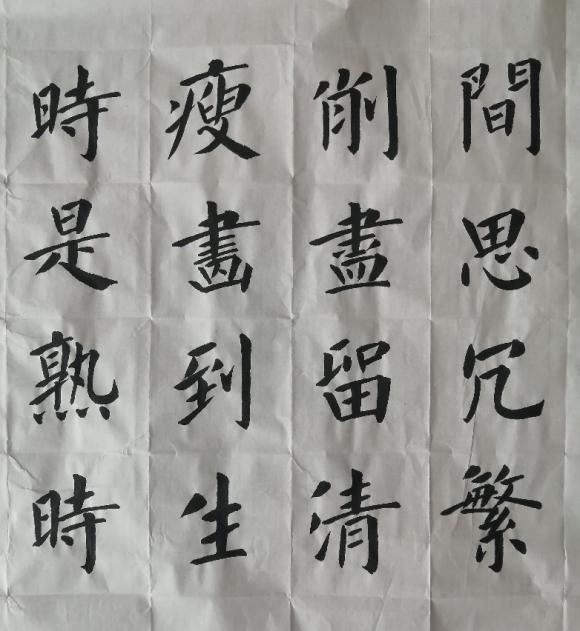 間思冗繁
削盡留清
瘦畫到生
時是熟時